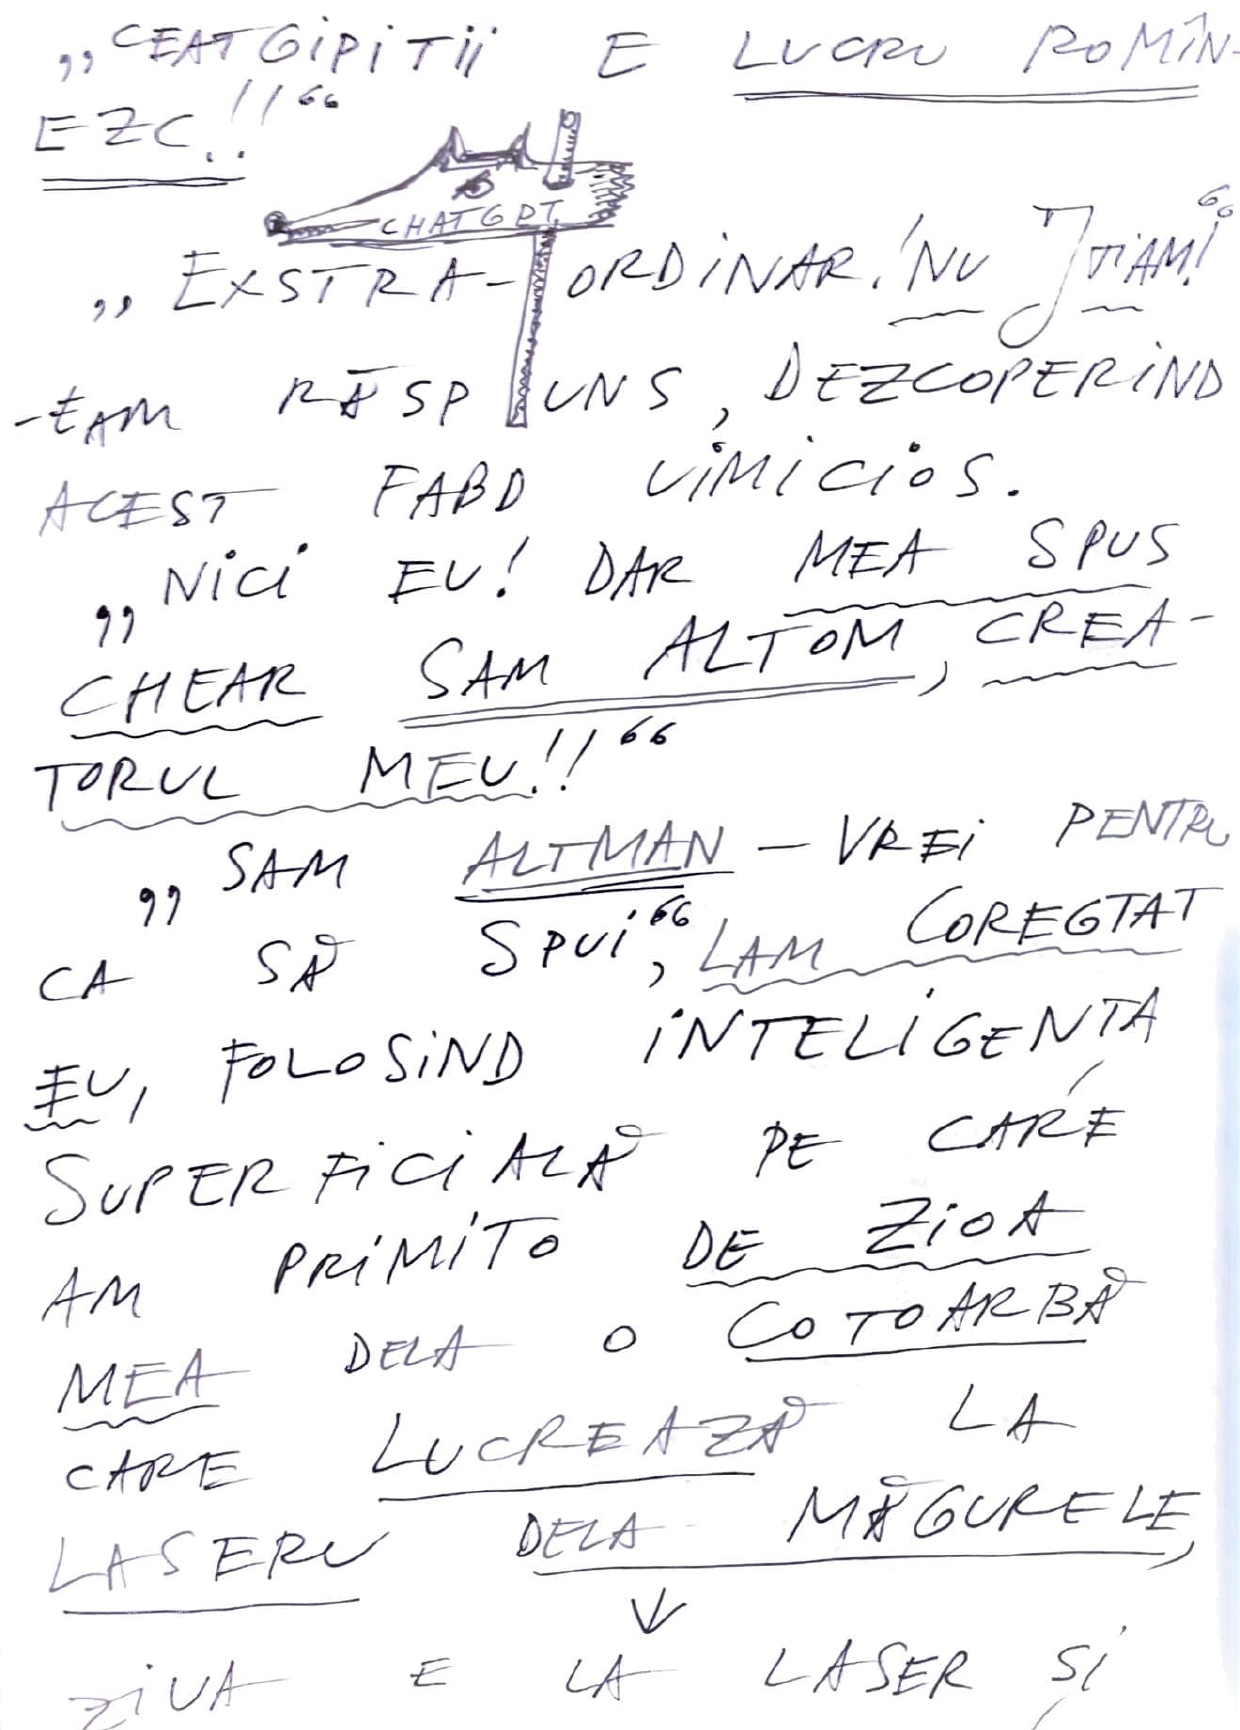 „CEATGIPITII E LUCRU ROMÎN-
EZC!!“
CHATGPT
„EXSTRA-ORDINAR! NU ȘTIAM!“
-EAM RĂSPUNS, DEZCOPERIND
ACEST FABD VIMICIOS.
„NICI EU! DAR MEA SPUS
CHEAR SAM ALTOM, CREA-
TORUL MEU!!“
„SAM ALTMAN – VREI PENTRU
CA SĂ SPUI“, LAM COREGTAT
EU, FOLOSIND INTELIGENȚA
SUPERFICIALĂ PE CARE
AM PRIMITO DE ZIOA
MEA DELA O COTOARBĂ
CARE LUCREAZĂ LA
LASERU DELA MĂGURELE,
↓
ZIUA E LA LASER ȘI